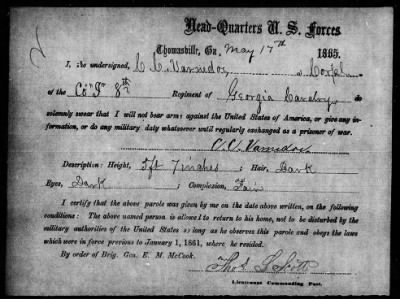 Head-Quarters U. S. Forces
Thomasville, Ga, May 17th 1865.
I, the undersigned, C. C. Varnedoe, a Corpl
of the Co "I" 8th Regiment of Georgia Cavalry, do
solemnly swear that I will not bear arms against the United States of America, or give any in-
formation, or do any military duty whatsoever until regularly exchanged as a prisoner of war.
C. C. Varnedoe
Description: Height, 5 ft 7 inches; Hair, Dark
Eyes, Dark; Complexion, Fair
I certify that the above parole was given by me on the date above written, on the following
conditions: The above named person is allowed to return to his home, not to be disturbed by the
military authorities of the United States so long as he observes this parole and obeys the laws
which were in force previous to January 1, 1861, where he resided.
By order of Brig. Gen. E. M. McCook.
Lieutenant Commanding Post.